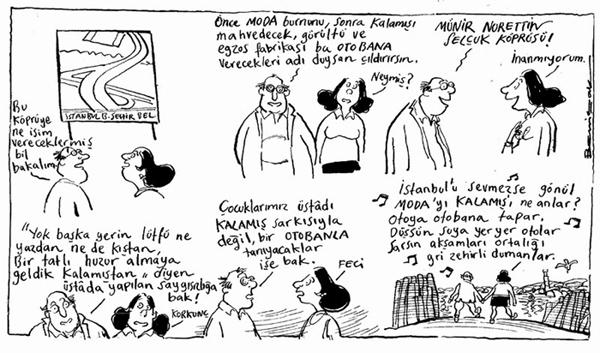 İSTANBUL B. ŞEHİR BEL
Bu
köprüye
ne isim
vereceklermiş
bil
bakalım
Önce MODA burnunu, sonra KALAMIŞI
mahvedecek, gürültü ve
egzos fabrikası bu OTOBANA
verecekleri adı duysan çıldırırsın.
Neymiş?
MÜNİR NURETTİN
SELÇUK KÖPRÜSÜ!
İnanmıyorum.
"Yok başka yerin lütfü ne
yazdan ne de kıştan,
Bir tatlı huzur almaya
geldik Kalamıştan" diyen
üstada yapılan saygısızlığa
bak!
KORKUNÇ
Çocuklarımız üstadı
KALAMIŞ şarkısıyla
değil, bir OTOBANLA
tanıyacaklar
işe bak.
FECİ
İstanbul'u sevmezse gönül
MODA'yı KALAMIŞ'ı ne anlar?
Otoya otobana tapar.
Düşsün suya yer yer otolar
Sarsın akşamları ortalığı
gri zehirli dumanlar.